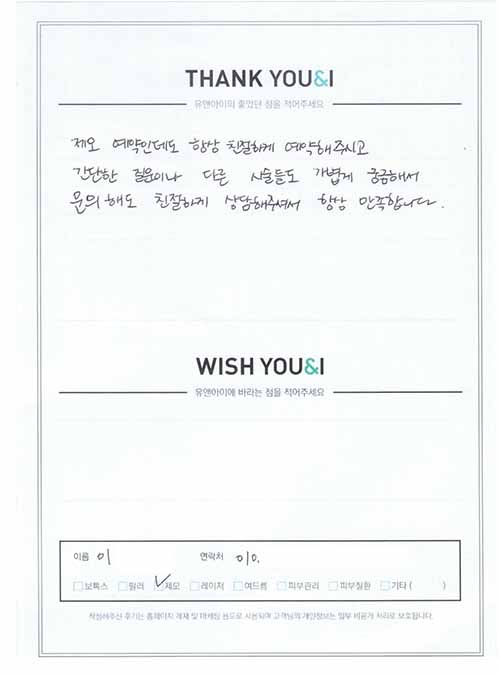 THANK YOU&I
유앤아이의 좋았던 점을 적어주세요
제모 예약인데도 항상 친절하게 예약해주시고
간단한 질문이나 다른 시술들도 가볍게 궁금해서
문의해도 친절하게 상담해주셔서 항상 만족합니다.
WISH YOU&I
유앤아이에 바라는 점을 적어주세요
이름 이 연락처 010.
보톡스 필러 제모 레이저 여드름 피부관리 피부질환 기타 ( )
작성해주신 후기는 홈페이지 게재 및 마케팅 용도로 사용되며 고객님의 개인정보는 일부 비공개 처리로 보호됩니다.